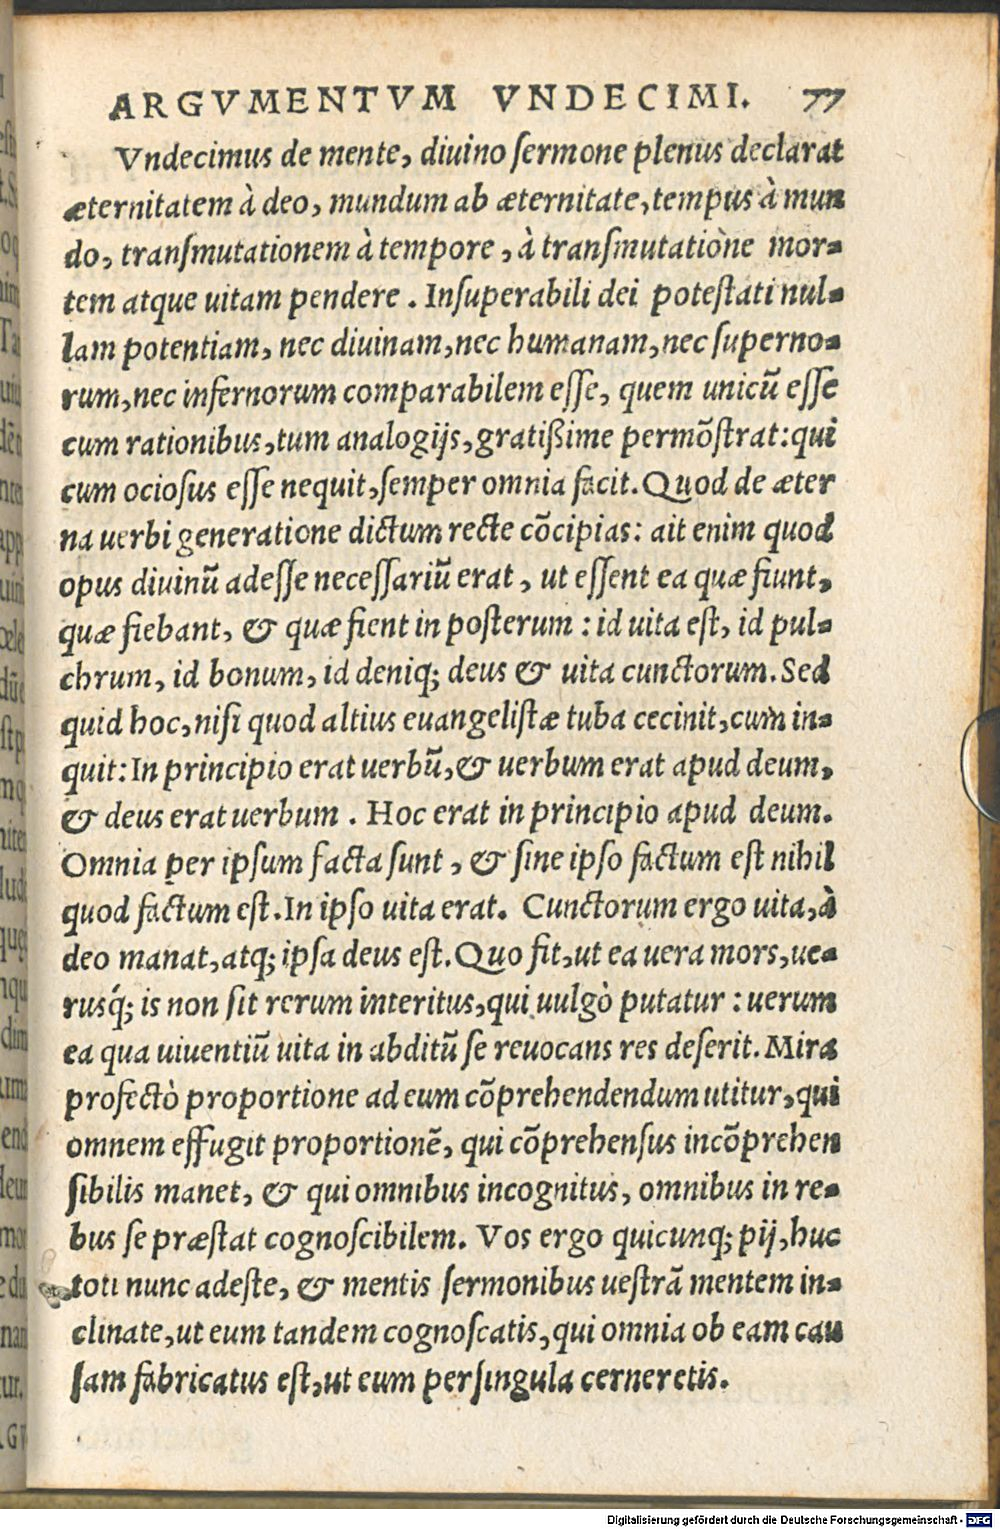 ARGVMENTVM VNDECIMI. 77
Vndecimus de mente, diuino ſermone plenus declarat
æternitatem à deo, mundum ab æternitate, tempus à mun
do, tranſmutationem à tempore, à tranſmutatiòne mor-
tem atque uitam pendere. Inſuperabili dei poteſtati nul-
lam potentiam, nec diuinam, nec humanam, nec ſuperno-
rum, nec infernorum comparabilem eſſe, quem unicū eſſe
cum rationibus, tum analogijs, gratißime permōſtrat: qui
cum ocioſus eſſe nequit, ſemper omnia facit. Quod de æter
na uerbi generatione dictum recte cōcipias: ait enim quod
opus diuinū adeſſe neceſſariū erat, ut eſſent ea quæ fiunt,
quæ fiebant, & quæ fient in poſterum: id uita eſt, id pul-
chrum, id bonum, id deniq; deus & uita cunctorum. Sed
quid hoc, niſi quod altius euangeliſtæ tuba cecinit, cum in-
quit: In principio erat uerbū, & uerbum erat apud deum,
& deus erat uerbum. Hoc erat in principio apud deum.
Omnia per ipſum facta ſunt, & ſine ipſo factum eſt nihil
quod factum eſt. In ipſo uita erat. Cunctorum ergo uita, à
deo manat, atq; ipſa deus eſt. Quo fit, ut ea uera mors, ue-
rusq́; is non ſit rerum interitus, qui uulgò putatur: uerum
ea qua uiuentiū uita in abditū ſe reuocans res deſerit. Mira
profectò proportione ad eum cōprehendendum utitur, qui
omnem effugit proportionē, qui cōprehenſus incōprehen
ſibilis manet, & qui omnibus incognitus, omnibus in re-
bus ſe præſtat cognoſcibilem. Vos ergo quicunq; pij, huc
toti nunc adeſte, & mentis ſermonibus ueſtrā mentem in-
clinate, ut eum tandem cognoſcatis, qui omnia ob eam cau
ſam fabricatus eſt, ut eum per ſingula cerneretis.
Digitalisierung gefördert durch die Deutsche Forschungsgemeinschaft - DFG